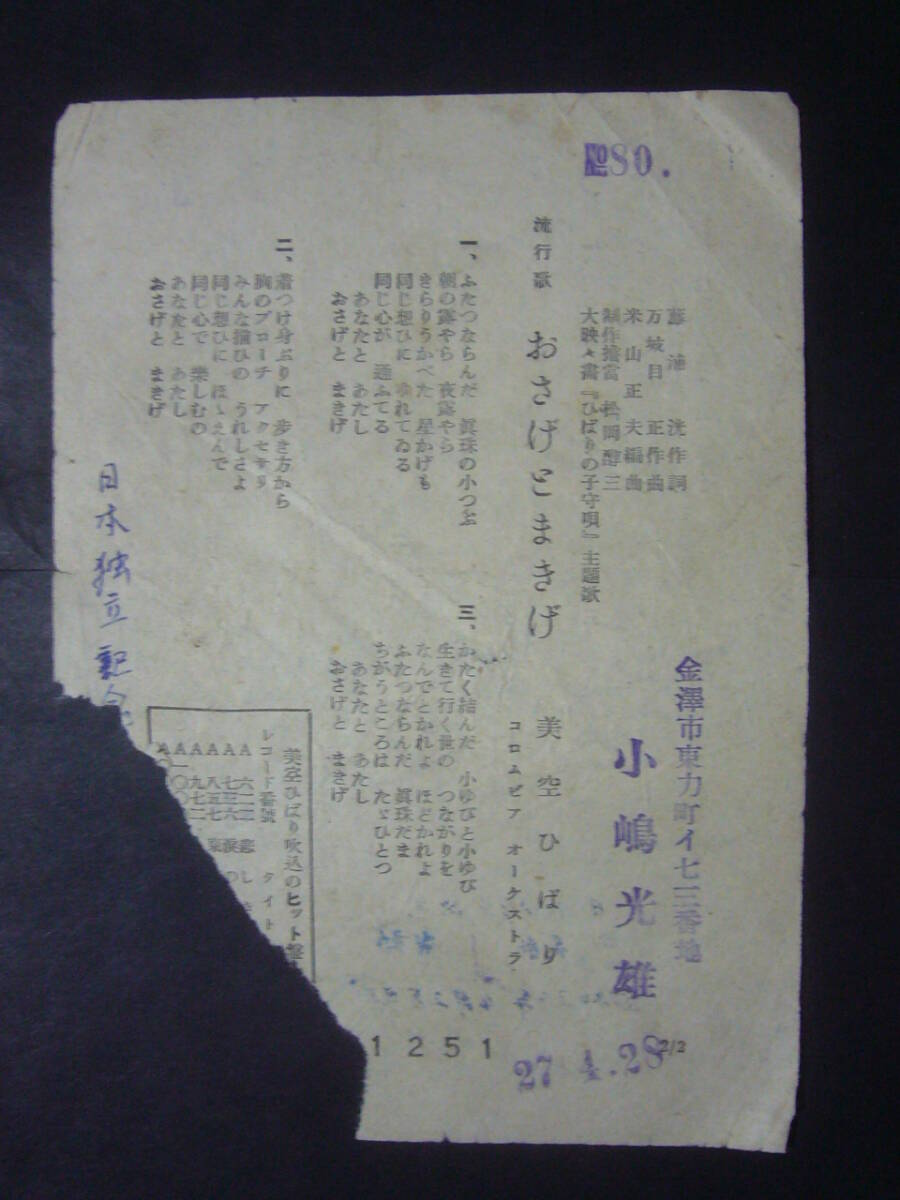 №80.
金澤市東力町イ七三番地
小嶋光雄
27 4.28
2/2
藤浦 洸作詞
万城目 正作曲
米山正夫編曲
制作擔當 松岡醇三
大映々畫『ひばりの子守唄』主題歌
流行歌 おさげとまきげ
美空ひばり
コロムビア オーケストラ
一、ふたつならんだ 眞珠の小つぶ
朝の露やら 夜露やら
きらりうかべた 星かげも
同じ想ひに ゆれてゐる
同じ心が 通ふてる
あなたと あたし
おさげと まきげ
二、着つけ身ぶりに 歩き方から
胸のブローチ アクセサリ
みんな揃ひの うれしさよ
同じ想ひに ほゝえんで
同じ心で 楽しむの
あなたと あたし
おさげと まきげ
三、かたく結んだ 小ゆびと小ゆび
生きて行く世の つながりを
なんでとかれよ ほどかれよ
ふたつならんだ 眞珠だま
ちがうところは たゞひとつ
あなたと あたし
おさげと まきげ
美空ひばり吹込のヒット盤
レコード番號 タイト
A 六一三 悲し
A 七三六 涙の
A 八五七
A 九七二
A一〇〇
1251
日本独立記念